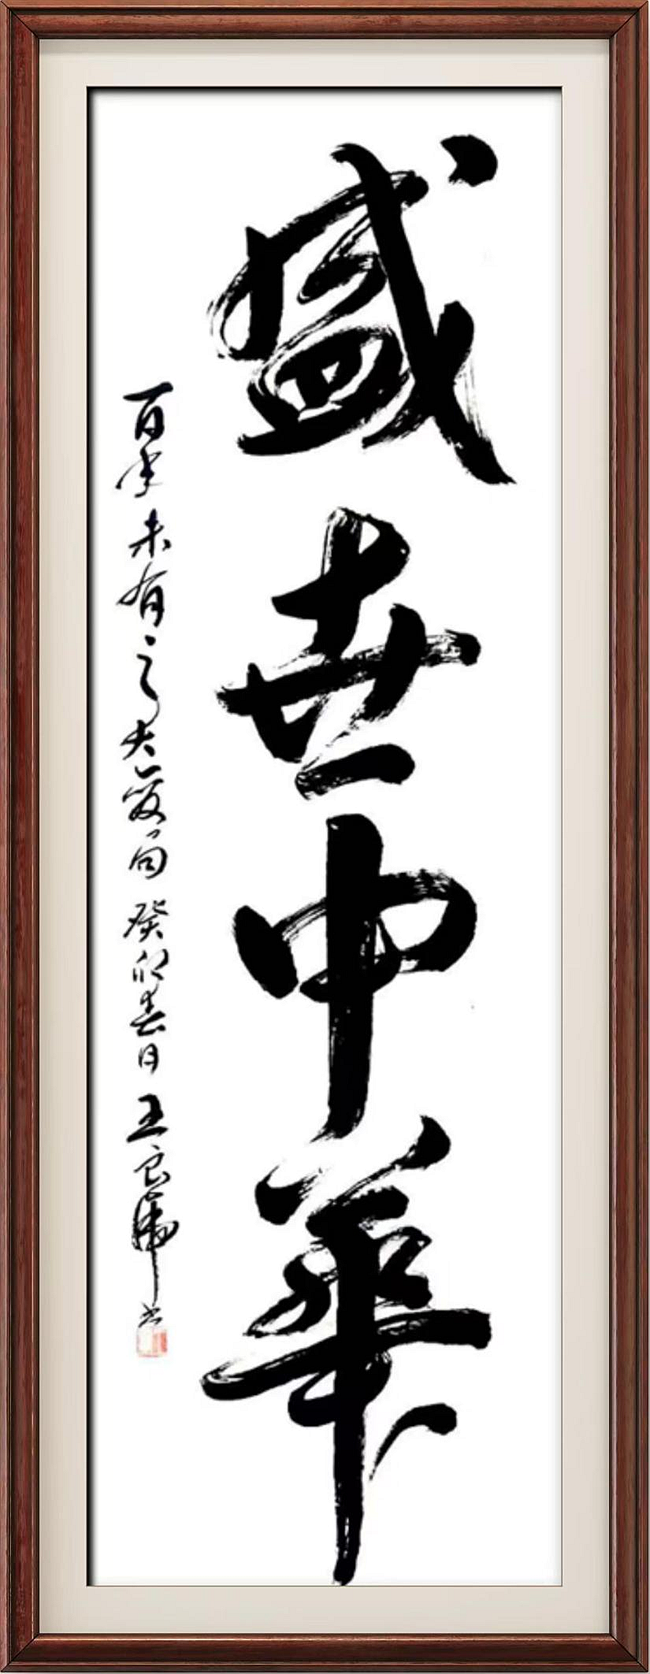 盛世中華
百年未有之大變局 癸卯春日 王良虎書